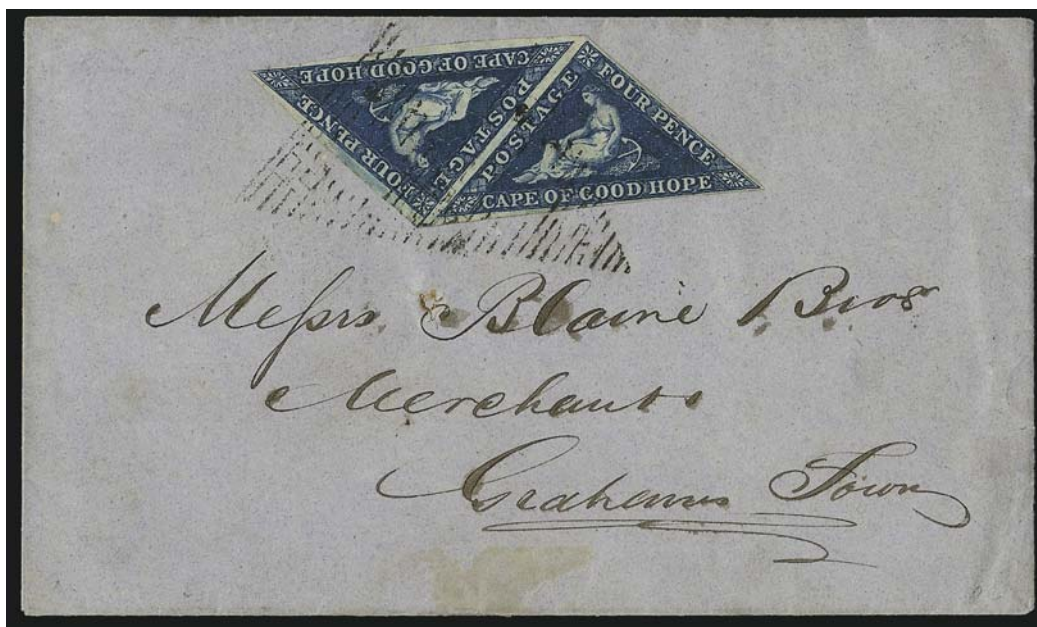 CAPE OF GOOD HOPE
FOUR PENCE
POSTAGE
POSTAGE
FOUR PENCE
CAPE OF GOOD HOPE
Meſsrs. Blaine Bros
Merchants
Grahams Town